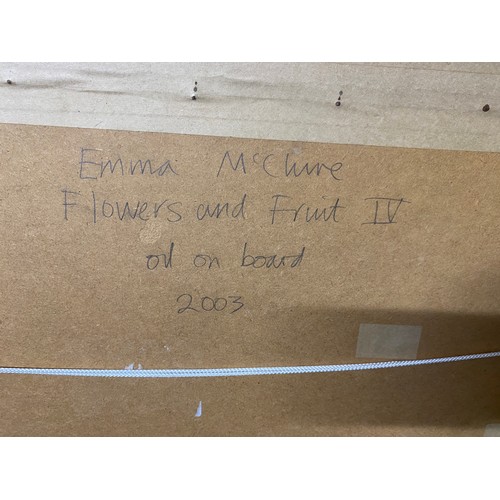 Emma McClure
Flowers and Fruit IV
oil on board
2003